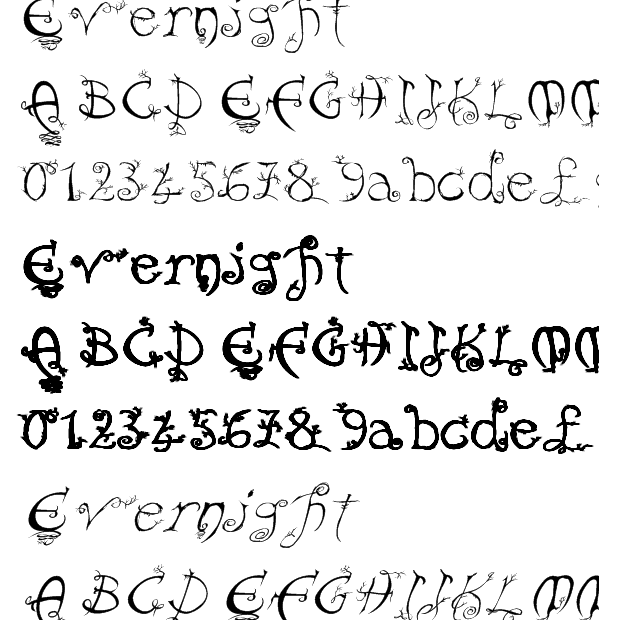 Evernight
A B C D E F G H I J K L M
0 1 2 3 4 5 6 7 8 9 a b c d e f
Evernight
A B C D E F G H I J K L M
0 1 2 3 4 5 6 7 8 9 a b c d e f
Evernight
A B C D E F G H I J K L M